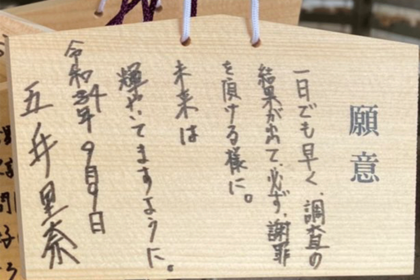 願意
一日でも早く、調査の
結果が出て、必ず、謝罪
を頂ける様に。
未来は
輝やいてますように。
令和4年9月9日
五ノ井里奈